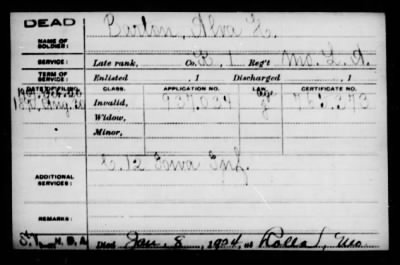 DEAD
NAME OF SOLDIER: Alva
SERVICE: Late rank, Co. B, 1 Reg't Mo. L. A.
TERM OF SERVICE: Enlisted , 1 Discharged , 1
DATE OF FILING. CLASS. APPLICATION NO. LAW. CERTIFICATE NO.
1890 Aug. 20 Invalid, 937.034
Widow,
Minor,
ADDITIONAL SERVICES: 12 Iowa Inf.
REMARKS:
N. B. A. Died Jan. 8, 1924, at Rolla, Mo.